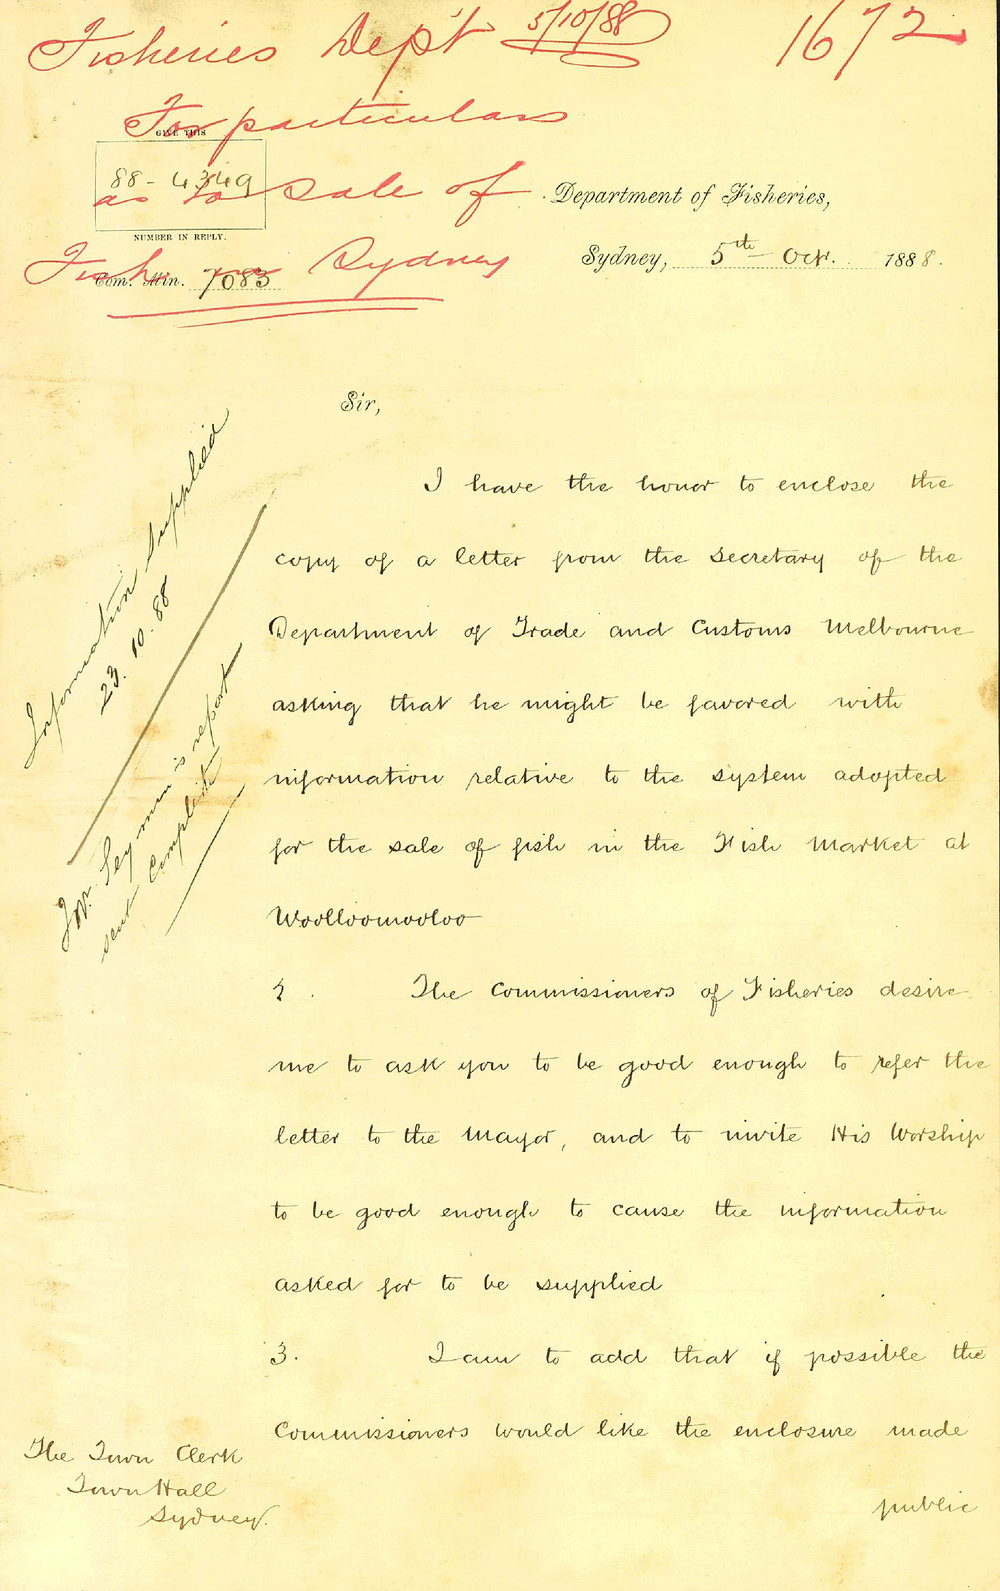 Fisheries Dept 5/10/88
1672
For particulars
as to sale of
Fish in Sydney
GIVE THIS
88-4349
NUMBER IN REPLY.
Com. Min. 7083
Department of Fisheries,
Sydney, 5th Oct. 1888.
Sir,
Information supplied
23.10.88
Seymour's report
sent complete
I have the honor to enclose the
copy of a letter from the Secretary of the
Department of Trade and Customs Melbourne
asking that he might be favored with
information relative to the system adopted
for the sale of fish in the Fish Market at
Woolloomooloo
2. The Commissioners of Fisheries desire
me to ask you to be good enough to refer the
letter to the Mayor, and to invite His Worship
to be good enough to cause the information
asked for to be supplied
3. I am to add that if possible the
Commissioners would like the enclosure made
public
The Town Clerk
Town Hall
Sydney.